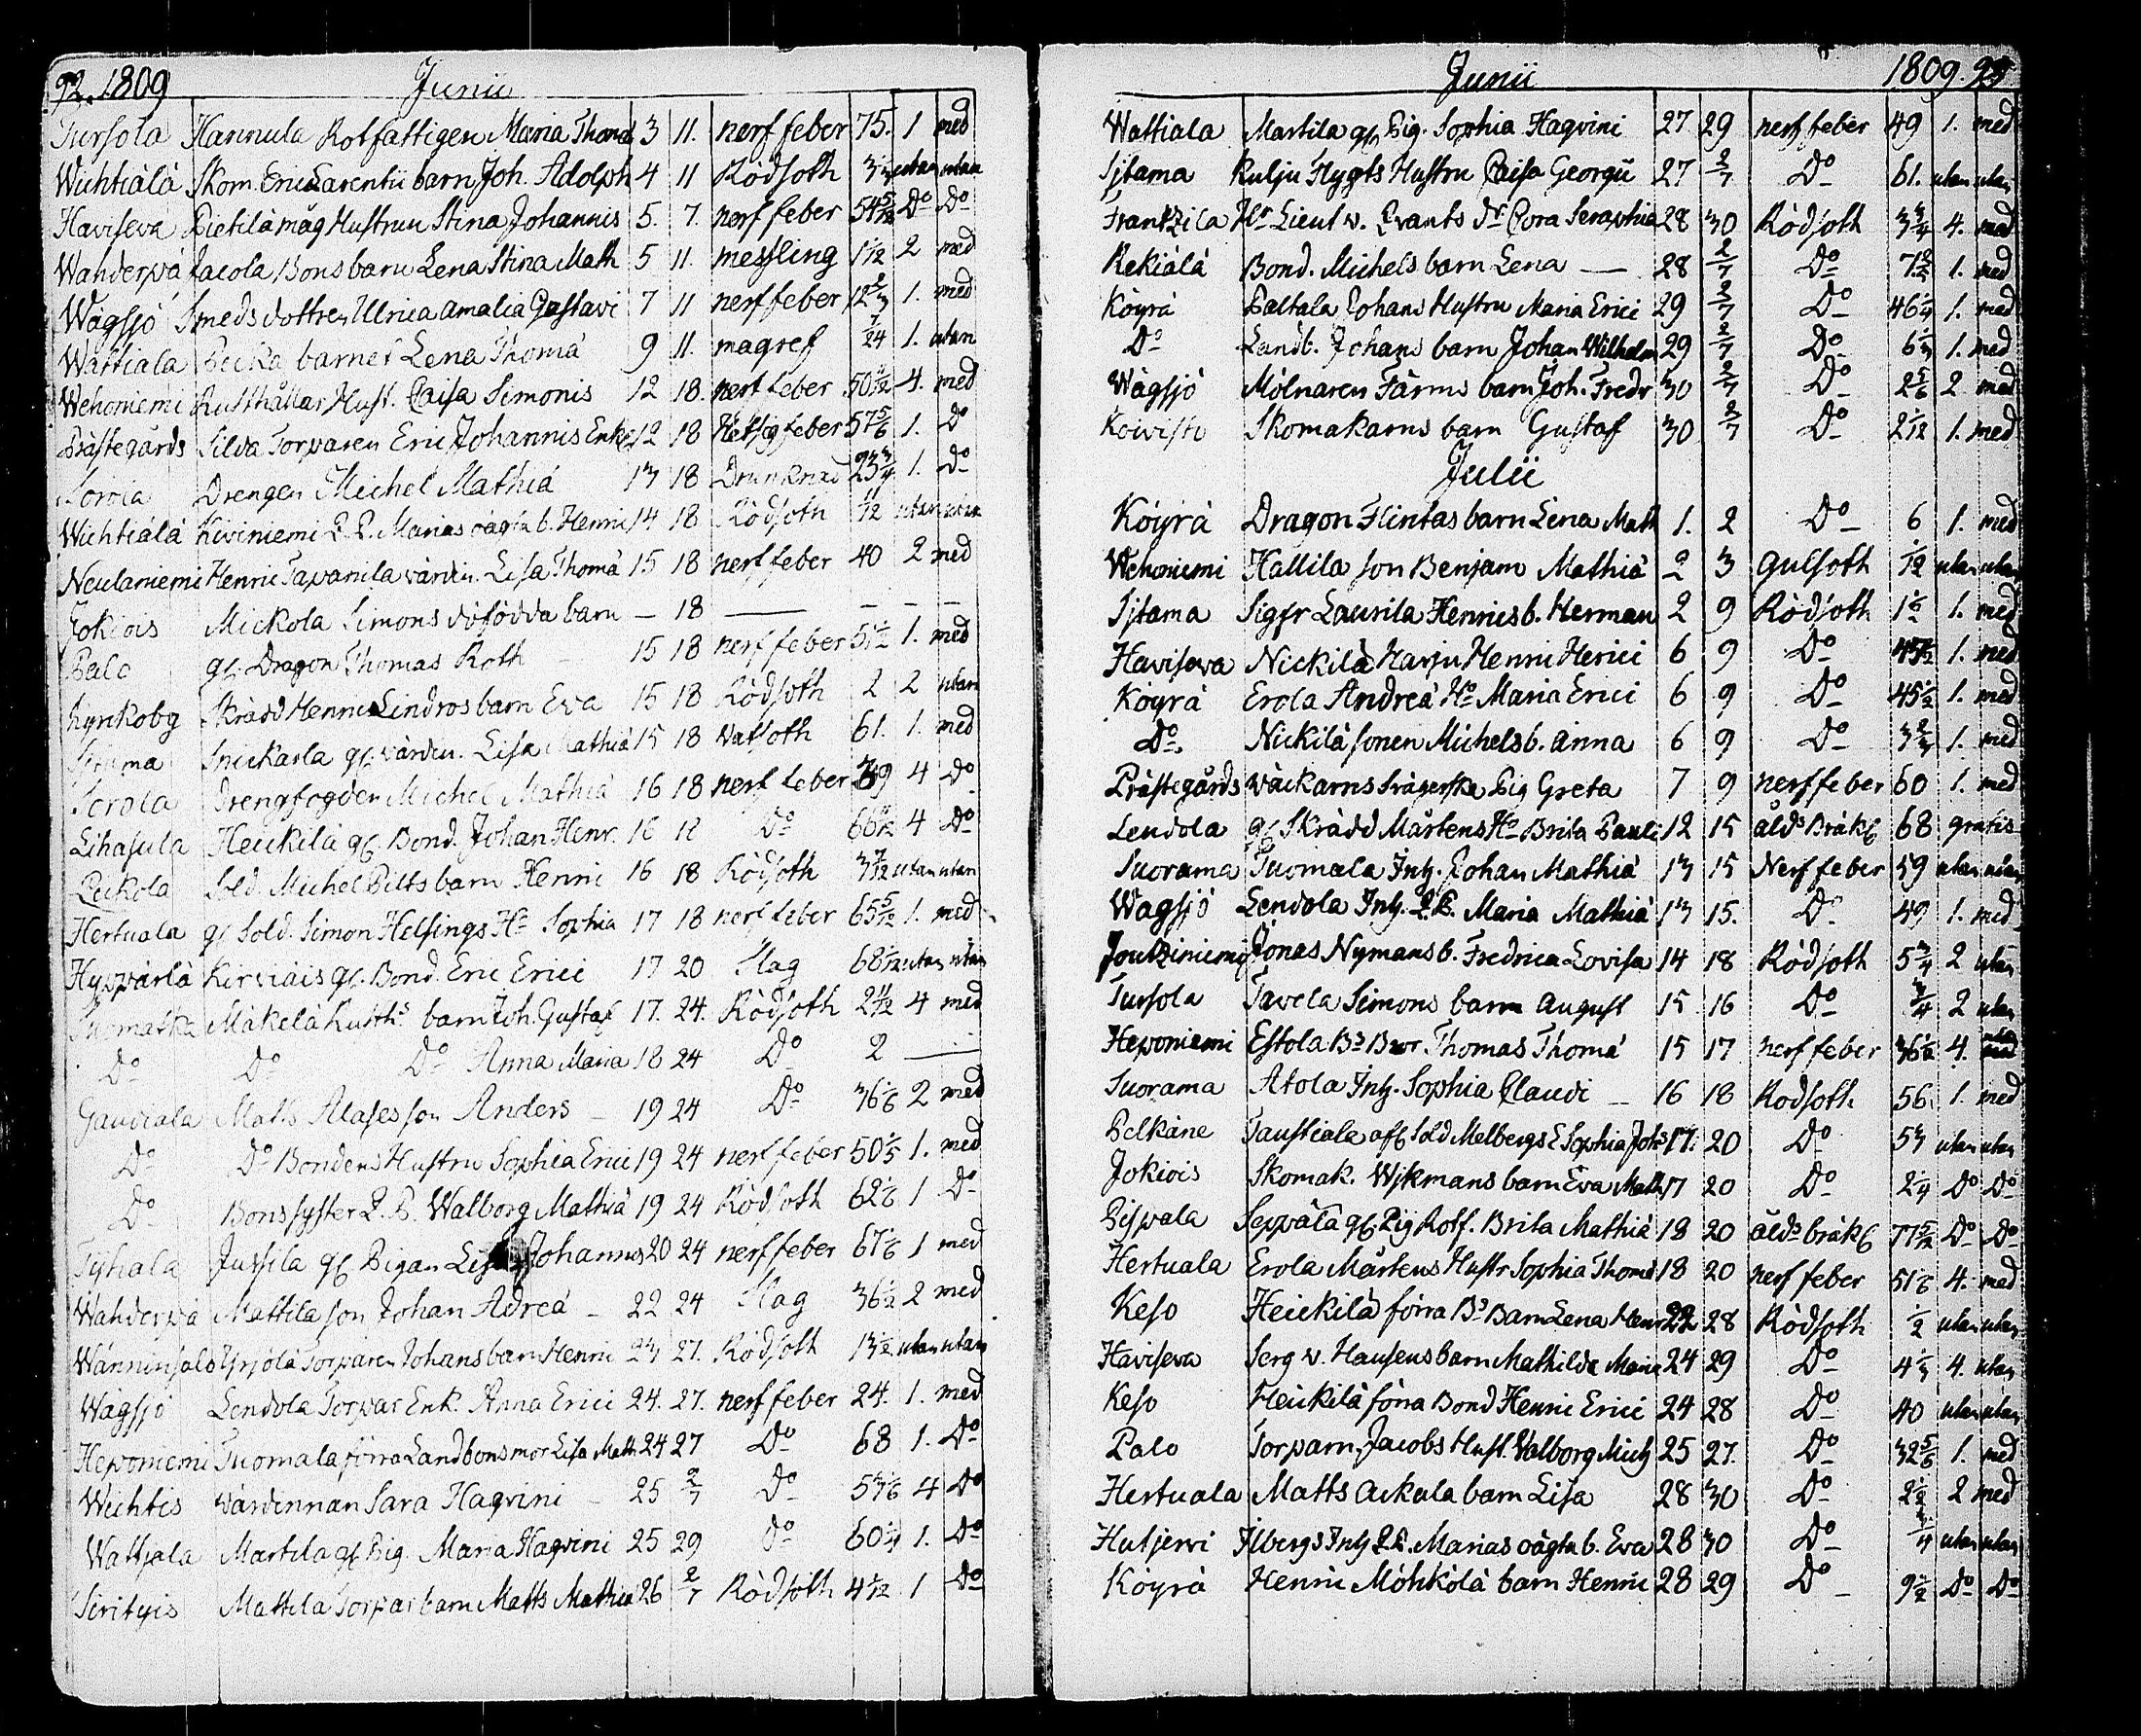 92. 1809 Junii
Tursola Hannula Rotfattigen Maria Thomæ 3 11. nerffeber 75. 1 med
Wichtiälä Skom. Eric Larentii barn Joh. Adolph 4 11 Rödsoth utan utan
Haviseva Pietilä måg Hustrun Stina Johannis 5. 7. nerffeber 54 5/12 Do Do
Wanderpä Jacola Bons barn Lena Stina Math 5 11. messling 1 1/12 2 med
Wågsjö Smeds dottren Ulrica Amalia Gustavi 7 11 nerffeber 12 2/3 1. med
Wattiala barnet Lena Thomä 9 11. magref 7/24 1. utan
Wehoniemi Rusthållar Hust. Caisa Simonis 12 18. nerffeber 50 4. med
Prästegårds Silda Torparen Eric Johannis Enke 12 18 Hetsig feber 57 5/6 1. Do
Drengen Michel Mathiä 13 18 Drunknad 23 3/4 1. Do
Wichtiälä Kiviniemi Q. P. Marias oägta b. Henric 14 18 Rödsoth utan utan
Neulaniemi Henric Tapanila värdin. Lisa Thomä 15 18 nerffeber 40 2 med
Jokiois Mickola Simons dödfödda barn — 18 — — — —
Palo gl. Dragon Thomas Roth 15 18 nerffeber 51 1/2 1. med
Kyrckobg Skrädd Henric Lindros barn Eva 15 18 Rödsoth 2 2 utan
Snickarla gl. värdin. Lisa Mathiä 15 18 Vatsoth 61. 1. med
Drengfogden Michel Mathiä 16 18 nerffeber 4 Do
Lihasula Heickilä gl. Bond. Johan Henr. 16 18 Do 66 4 Do
Peckola Sold. Michel Pilts barn Henric 16 18 Rödsoth 3 7/12 utan utan
Hertuala gl. Sold. Simon Helsings Ho Sophia 17 18 nerffeber 65 5/12 1. med
Hyppärlä Kirviäis gl. Bond. Eric Erici 17 20 Slag 68 1/12 utan utan
Mäkelä Rusth. barn Joh. Gustaf 17. 24. Rödsoth 2 4 med
Do Do Do Anna Maria 18 24 Do 2 —
Gaudiala Matts Alases son Anders 19 24 Do 36 1/6 2 med
Do Do Bondens Hustru Sophia Erici 19 24 nerffeber 50 1/5 1. med
Do Bons syster Q. P. Walborg Mathiä 19 24 Rödsoth 62 1/6 1 Do
Tyhala Jussila gl. Pigan Lisa Johannis 20 24 nerffeber 67 1/6 1 med
Wahderpä Mattila son Johan Adreä 22 24 Slag 36 1/2 2 med
Wänninsalo Yrjölä Torparen Johans barn Henric 23 27. Rödsoth 13 1/2 utan utan
Wågsjö Lendola Torpar Enk. Anna Erici 24. 27. nerffeber 24. 1. med
Heponiemi Tuomala förra Landbons mor Lisa Math 24 27 Do 68 1. Do
Wichtis värdinnan Sara Hagvini 25 2/7 Do 4 Do
Wattjala Martila gl. Pig. Maria Hagvini 25 29 Do 60 1/4 1. Do
Mattila Torpar barn Matts Mathiä 26 2/7 Rödsoth 4 1/12 1 Do
Junii 1809. 93
Wattiala Martila gl. Pig. Sophia Hagvini 27 29 nerffeber 49 1. med
Sjtama Kulju Flygts Hustru Caisa Georgii 27 2/7 Do 61. utan utan
Frantzila Hr Lieut v. Qvants dr Cora Seraphia 28 30 Rödsoth 3 3/4 4. med
Rekiälä Bond. Michels barn Lena — 28 2/7 Do 1. med
Köyrä Paltala Johans Hustru Maria Erici 29 2/7 Do 46 1/4 1. med
Do Landb. Johans barn Johan Wilhelm 29 2/7 Do 6 1/3 1. med
Wågsjö Mölnaren Färms barn Joh. Fredr 30 2/7 Do 2 5/6 2 med
Koivisto Skomakarns barn Gustaf 30 2/7 Do 2 1/12 1. med
Julii
Köyrä Dragon Flintas barn Lena Math 1. 2 Do 6 1. med
Wehoniemi Hallila son Benjam Mathiä 2 3 Gulsoth 1/12 utan utan
Sjtama Sigfr Laurila Henrics b. Herman 2 9 Rödsoth 1 1/6 1. med
Haviseva Nickilä Harju Henric Henrici 6 9 Do 1. med
Köyrä Erola Andreä Ho Maria Erici 6 9 Do 45 1/2 1. med
Do. Nickilä sonen Michels b. Anna 6 9 Do 3 2/3 1. med
Prästegårds väckarns svägerska Pig Greta 7 9 nerffeber 60 1. med
Lendola gl. Skrädd Mårtens Ho Brita Pauli 12 15 åld. Bräkl 68 gratis
Suorama Tuomala Inh. Johan Mathiä 13 15 Nerffeber 59 utan utan
Wågsjö Lendola Inh. Q. P. Maria Mathiä 13 15. Do 49 1. med
Joutziniemi Jonas Nymans b. Fredrica Lovisa 14 18 Rödsoth 5 3/4 2 utan
Tursola Tavela Simons barn August 15 16 Do 3/4 2 utan
Heponiemi Estola Bs Bror Thomas Thomä 15 17 nerffeber 36 1/2 4.
Suorama Atola Inh. Sophia Claudi 16 18 Rödsoth 56 1. med
Pelkäne Taustiala afl. Sold Melbergs E Sophia Joh 17. 20 Do utan utan
Jokiois Skomak. Wjkmans barn Eva Math 17 20 Do 2 1/4 Do Do
Pispala Seppälä gl. Pig Rotf. Brita Mathiä 18 20 åld. bräkl 77 5/12 Do Do
Hertuala Erola Mårtens Hustr Sophia Thomä 18 20 nerffeber 51 1/6 4. med
Keso Heickilä förra Bs Barn Lena Henr 22 28 Rödsoth 1/2 utan utan
Haviseva Serg v. Hausens barn Mathilda Maria 24 29 Do 4 1/3 4. utan
Keso Heickilä förra Bond Henric Erici 24 28 Do 40 utan utan
Palo Torparn Jacobs Hust. Valborg Mich 25 27. Do 32 5/6 1. med
Hertuala Matts Arkula barn Lisa 28 30 Do 2 1/2 2 med
Hutjervi Ilbergs Inh Q. P. Marias oägta b. Eva 28 30 Do 3/4 utan utan
Köyrä Henric Möhkölä barn Henric 28 29 Do 9 1/2 Do Do